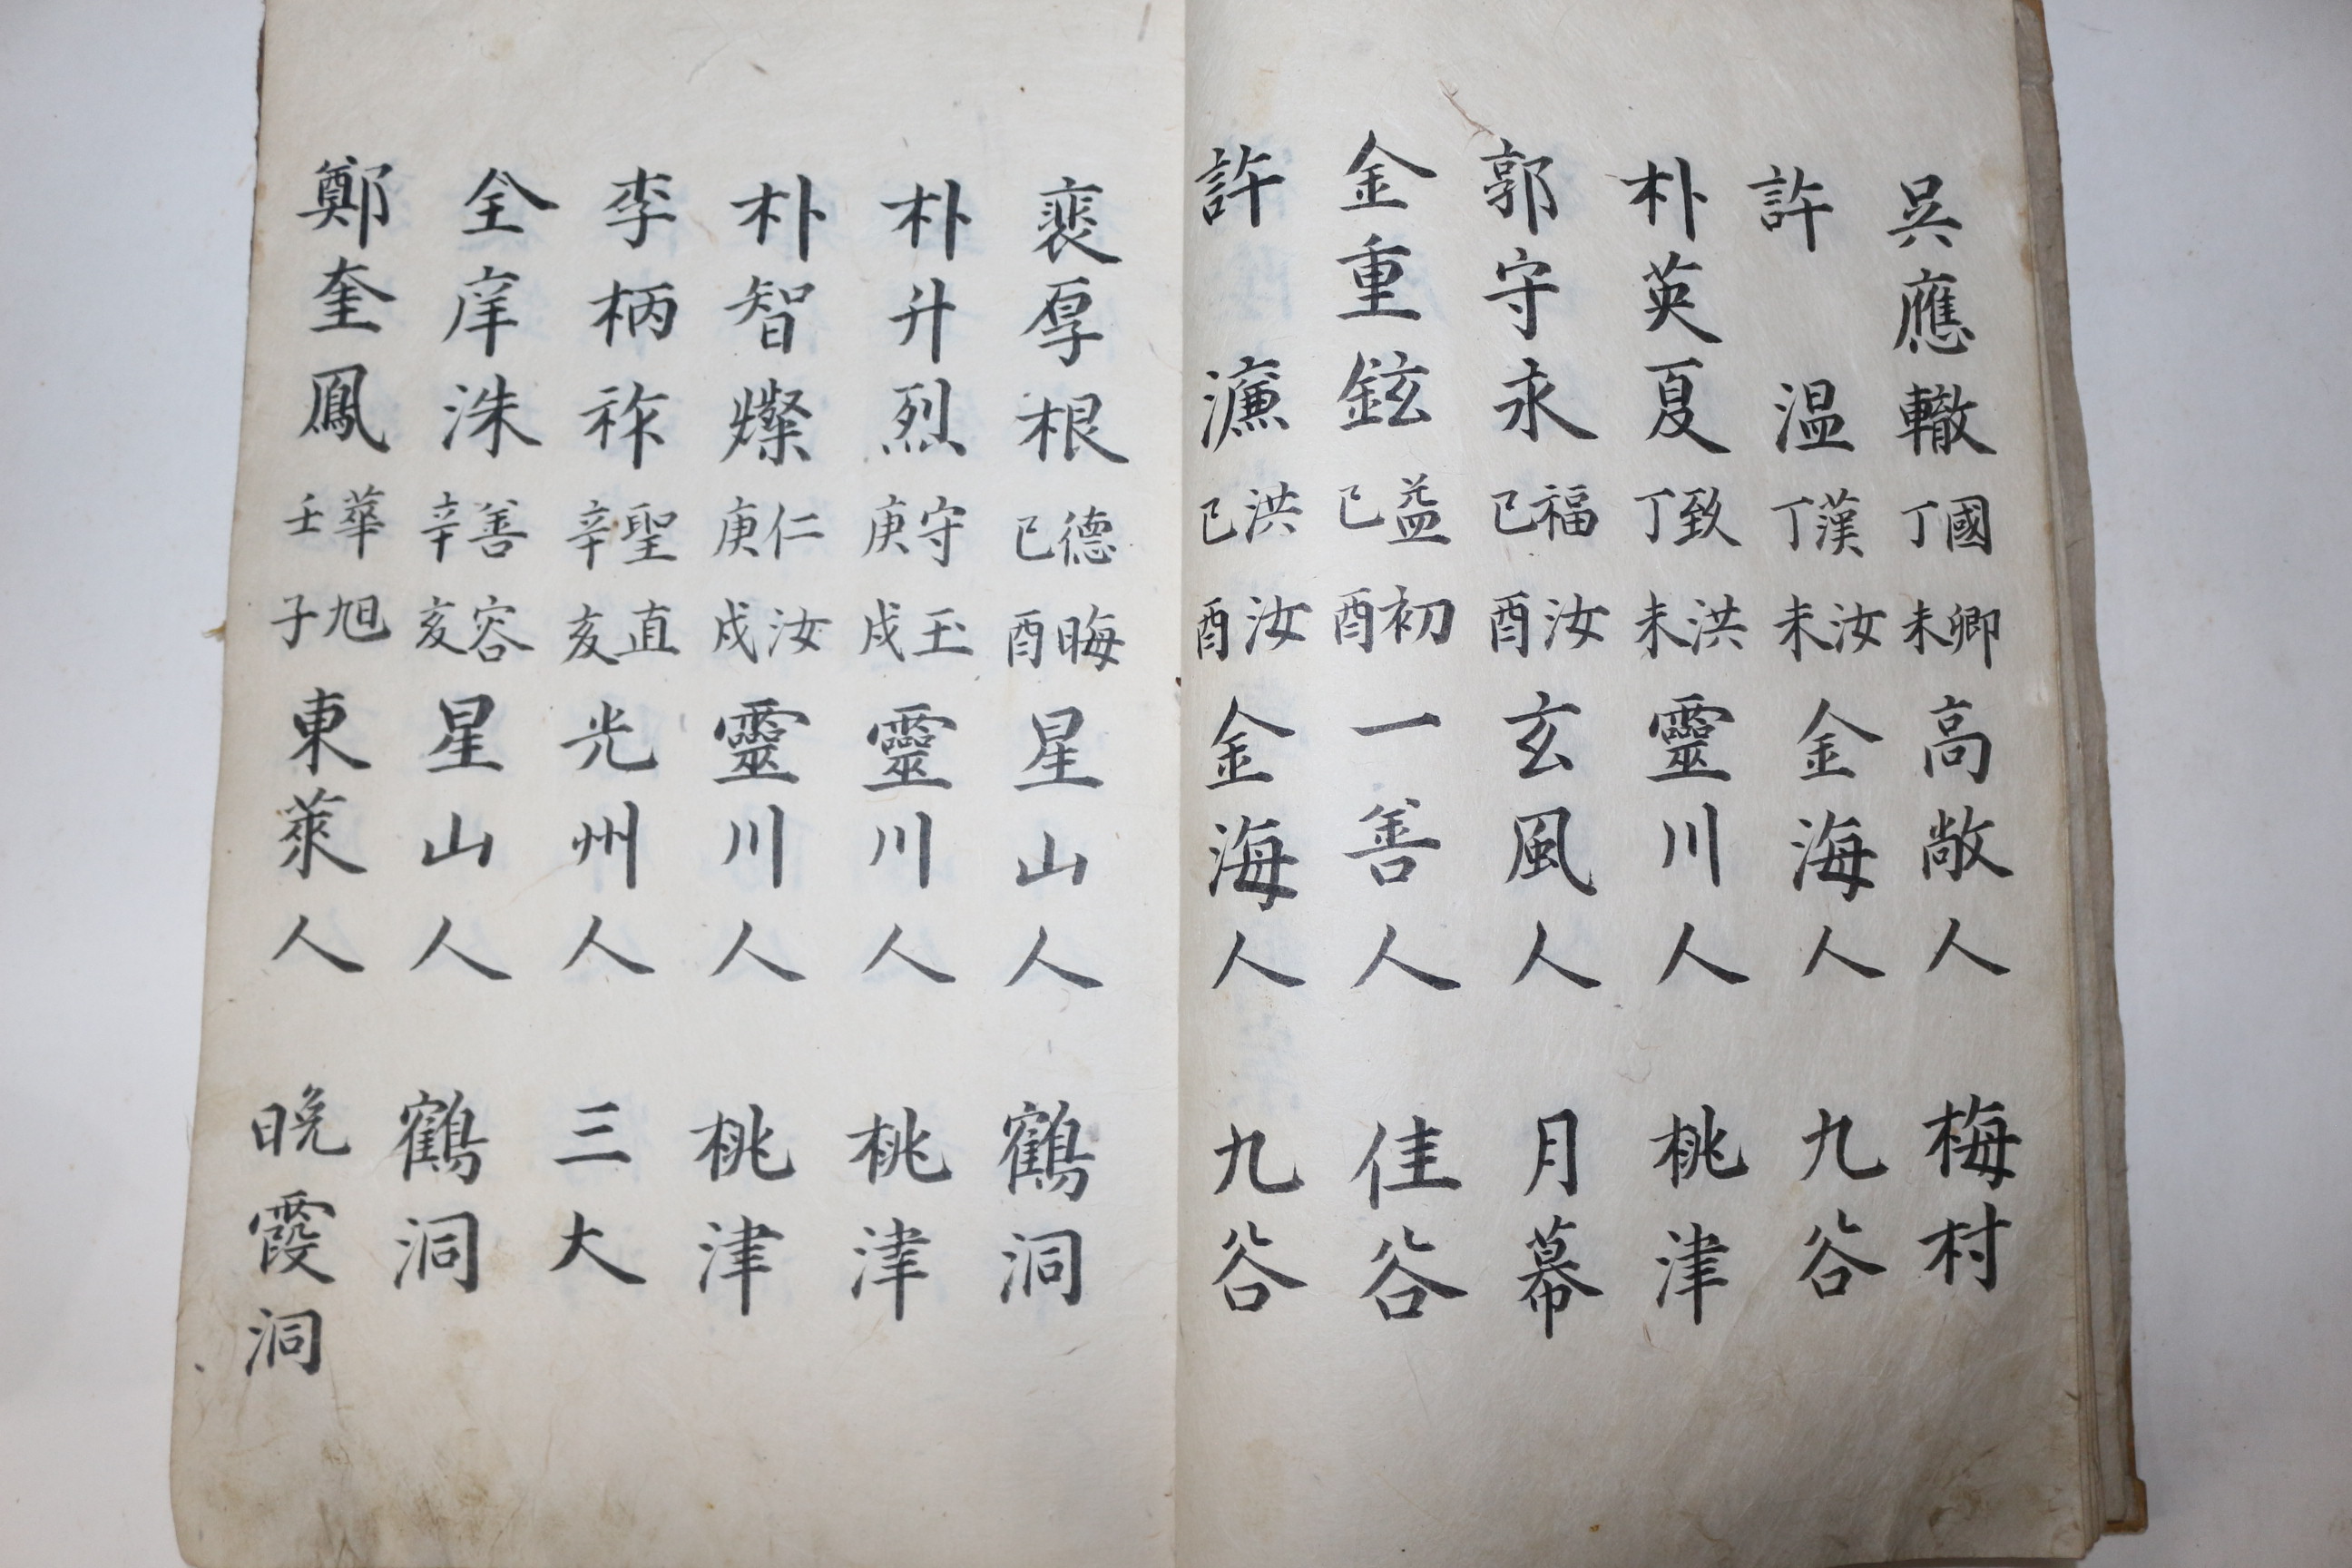 吳應轍 國卿 丁未 高敞人 梅村
許 溫 漢汝 丁未 金海人 九谷
朴英夏 致洪 丁未 靈川人 桃津
郭守永 福汝 己酉 玄風人 月幕
金重鉉 益初 己酉 一善人 佳谷
許 濂 洪汝 己酉 金海人 九谷
裵厚根 德晦 己酉 星山人 鶴洞
朴升烈 守玉 庚戌 靈川人 桃津
朴智燦 仁汝 庚戌 靈川人 桃津
李柄祚 聖直 辛亥 光州人 三大
全庠洙 善容 辛亥 星山人 鶴洞
鄭奎鳳 華旭 壬子 東萊人 晩霞洞